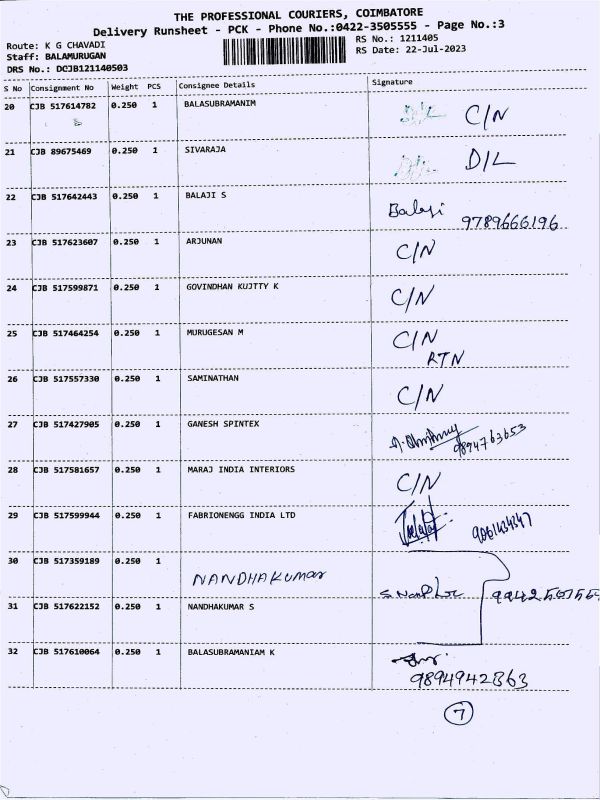 THE PROFESSIONAL COURIERS, COIMBATORE
Delivery Runsheet - PCK - Phone No.:0422-3505555 - Page No.:3
Route: K G CHAVADI RS No.: 1211405
Staff: BALAMURUGAN RS Date: 22-Jul-2023
DRS No.: DCJB121140503
S No Consignment No Weight PCS Consignee Details Signature
20 CJB 517614782 0.250 1 BALASUBRAMANIM D/L C/N
21 CJB 89675469 0.250 1 SIVARAJA D/L D/L
22 CJB 517642443 0.250 1 BALAJI S Balaji 9789666196
23 CJB 517623607 0.250 1 ARJUNAN C/N
24 CJB 517599871 0.250 1 GOVINDHAN KUJTTY K C/N
25 CJB 517464254 0.250 1 MURUGESAN M C/N
RTN
26 CJB 517557330 0.250 1 SAMINATHAN C/N
27 CJB 517427905 0.250 1 GANESH SPINTEX 9894763653
28 CJB 517581657 0.250 1 MARAJ INDIA INTERIORS C/N
29 CJB 517599944 0.250 1 FABRIONENGG INDIA LTD
30 CJB 517359189 0.250 1 NANDHAKUMAR
31 CJB 517622152 0.250 1 NANDHAKUMAR S
32 CJB 517610064 0.250 1 BALASUBRAMANIAM K
9894942863
7